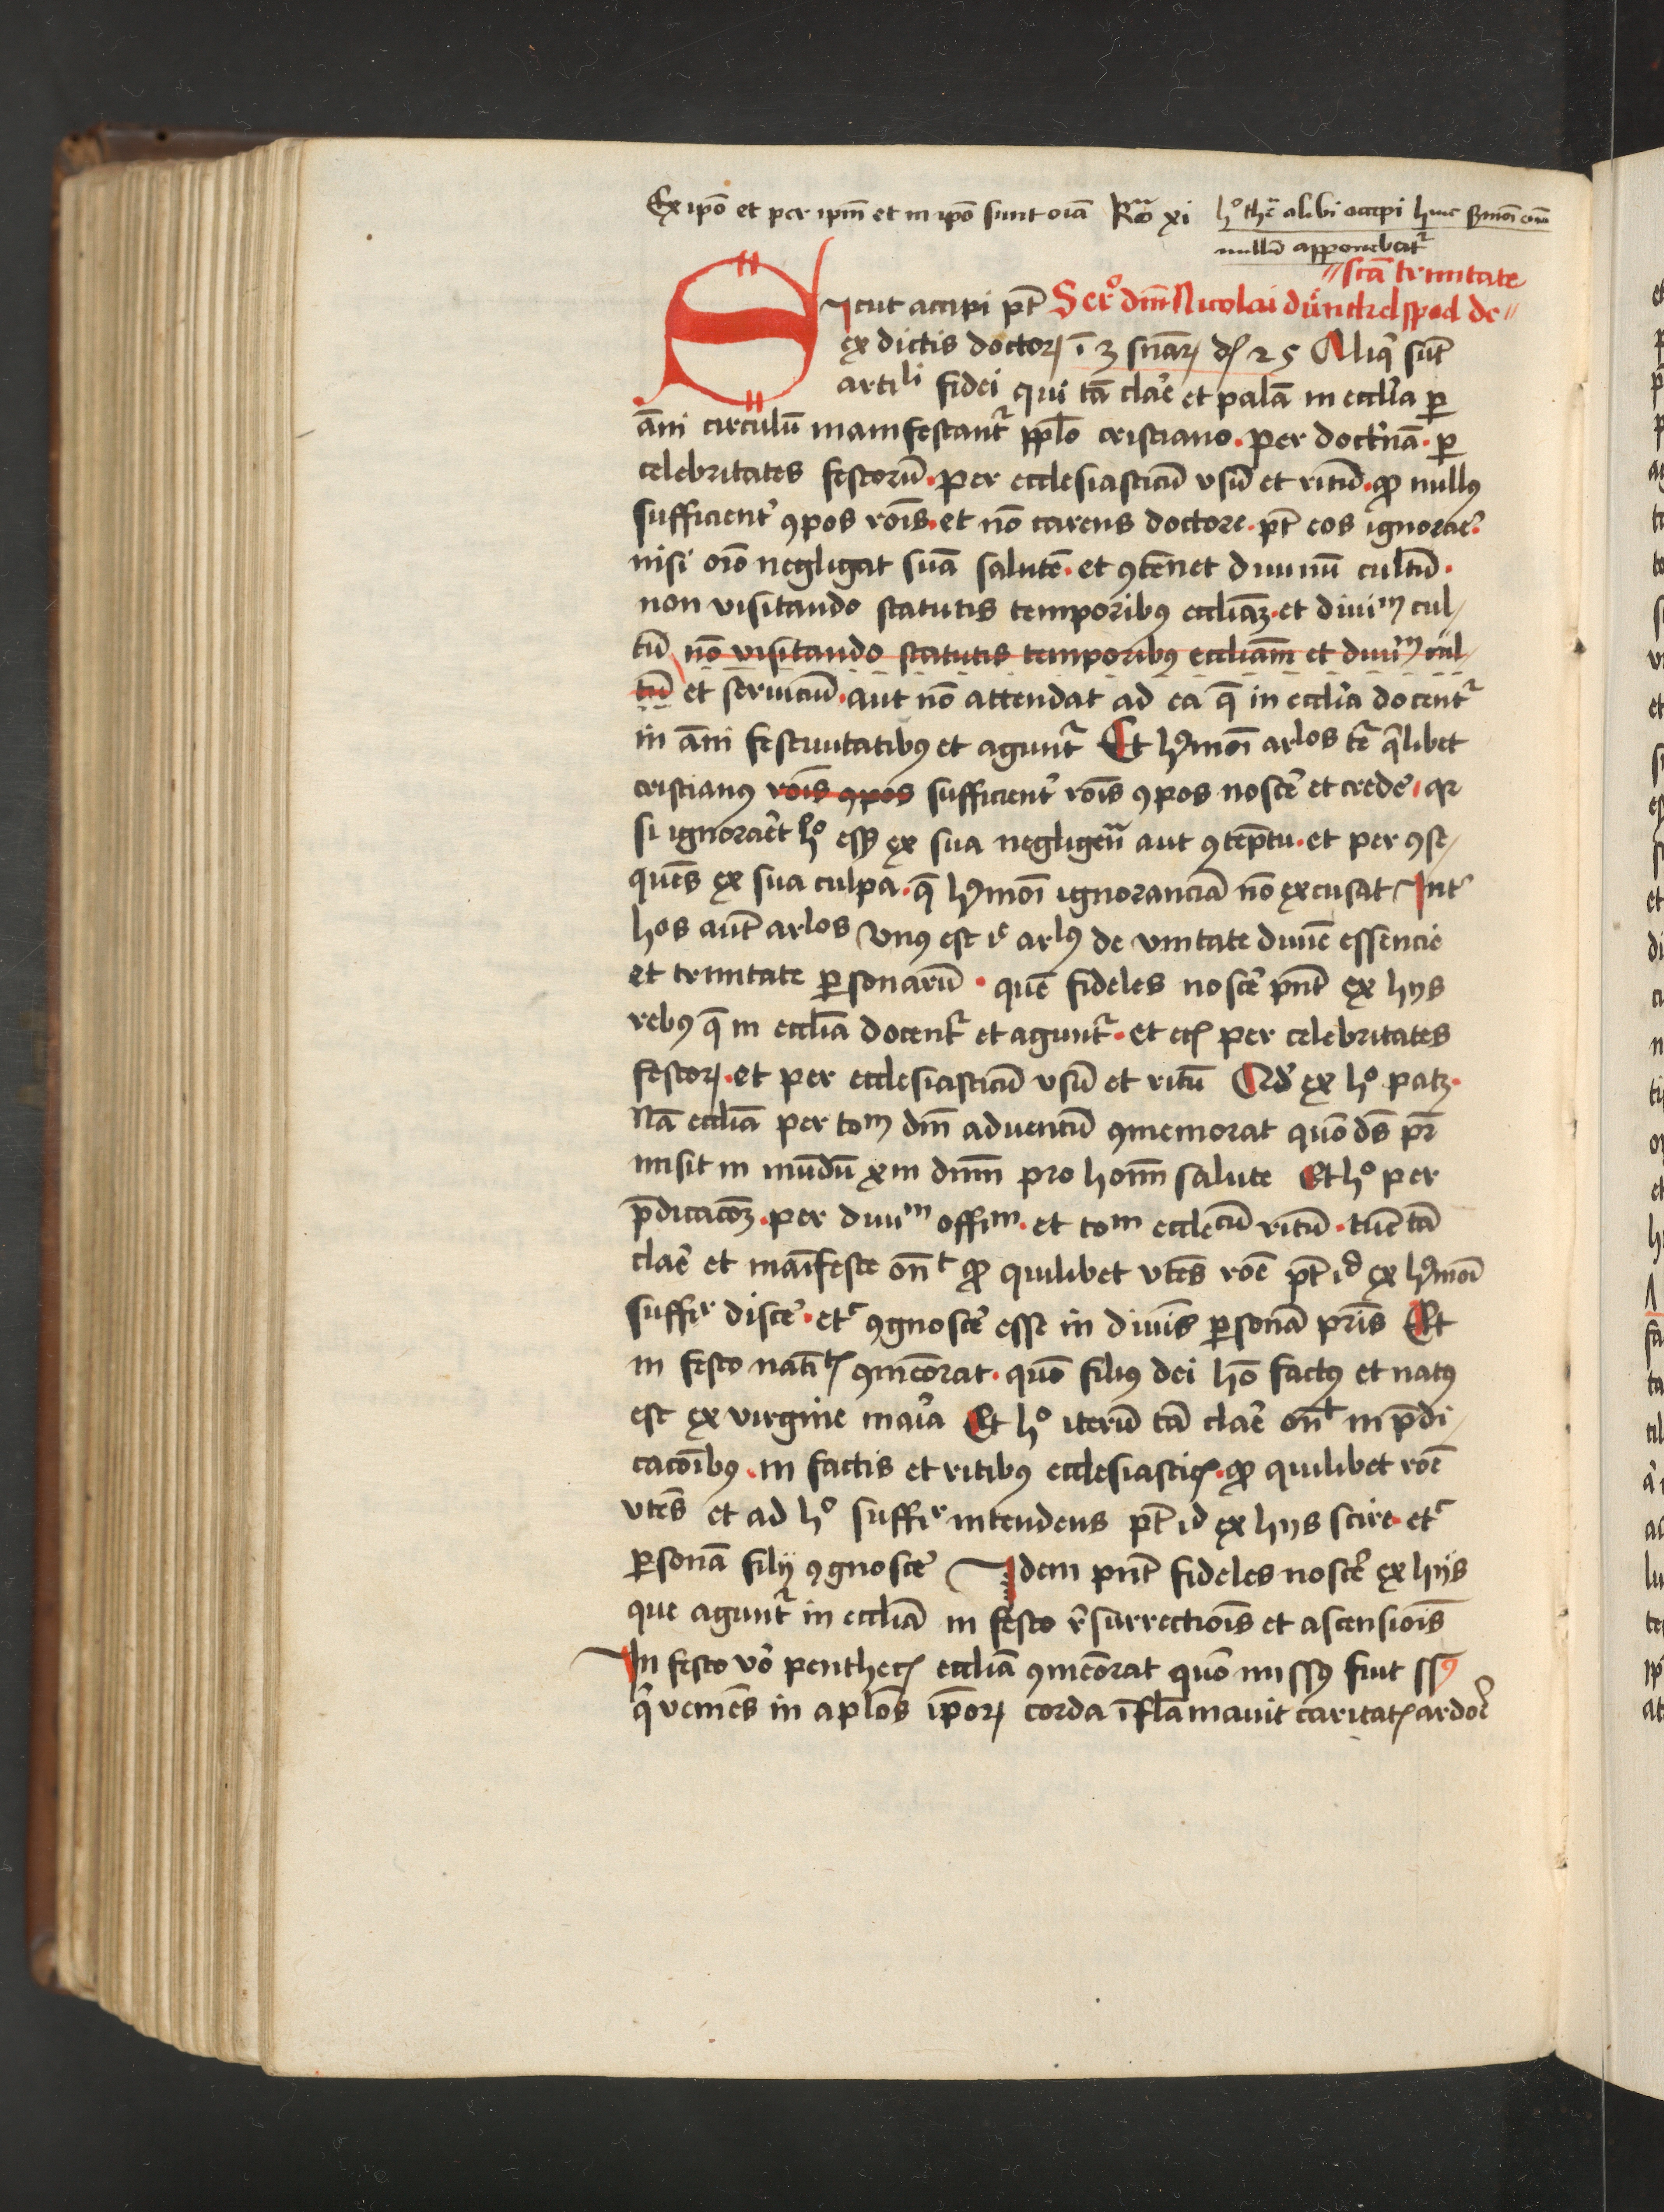 Ex ipō et per ipm̄ et in ipō sunt oīa Ro xi hº thē alibi accepi huic smōi
nullū apponebat᷑
scā trinitate
Sicut accipi pt̄ Serº dni Nicolai dinckelspod de
ex dictis doctoꝝ ī 3 snāꝝ dꝭ 25 Aliq̄ sūt
artili fidei qui tā clare et palā in ecclīa ꝑ
āni circulū manifestant᷑ pplō cristiano. per doctnā. ꝑ
celebritates festorū. per ecclesiasticū vsū et ritū. ꝙ nullꝰ
sufficient ꝯpos rōis. et nō carens doctore. pt̄ eos ignorare.
nisi oīo negligat suā salutē. et ꝯtēnet diuinū cultū.
non visitando statutis temporibꝰ eccliāꝫ. et diuim cul-
tū nō visitando statutis temporibꝰ eccliam̄ et diuim cul-
tū et seruiciū. aut nō attendat ad ea q̄ in ecclīa docent᷑
in āni festiuitatibꝰ et agunt᷑ Et hꝰmōi arlos tr̄ qlibet
cristianꝰ rōis ꝯpos sufficient rōis ꝯpos noscē et credē. qr
si ignoraret hº esꝫ ex sua negligēn aut ꝯtēptu. et per ꝯse-
quēs ex sua culpa. q̄ hꝰmōi ignoranciā nō excusat Int
hos aūt arlos vnꝰ est ie arlꝰ de vnitate diuīe essencie
et trinitate ꝑsonarū. quē fideles noscē pn̄t ex hys
rebꝰ q̄ in ecclīa docent᷑ et agunt᷑. et ecꝭ per celebritates
festoꝝ. et per ecclesiasticū vsū et ritū Qd ex hº patꝫ.
Nā ecclīa per tom dm̄ aduentū ꝯmemorat quō ds̄ pr̄
misit in mūdū xm dnm̄ pro hom̄ salute Et hº per
p̄dicacōꝫ. per diuim offim. et tom ecclecū ritū. tūc tā
clare et maīfeste on̄t ꝙ quilibet vtēs rōe pt̄ id ex hꝰmōi
suffir discē. etr ꝯgnoscē esse in diuis ꝑsonā pr̄is Et
in festo natītꝭ ꝯmeōrat. quō filiꝰ dei hō factꝰ et natꝰ
est ex virgine maīa Et hº iterū tā clare on̄t in p̄di-
cacōibꝰ. in factis et ritibꝰ ecclesiasticꝭ. ꝙ quilibet rōe
vtēs et ad hº suffir intendens pt̄ id ex hys scire. etr
ꝑsonā filij ꝯgnoscē Idem pn̄t fideles noscē ex hijs
que agunt᷑ in eccliā in festo rsurrectiois et ascensiois
In festo vō penthecꝭ eccliā ꝯmeōrat quō missꝰ fuit ssꝰ
q̄ veniēs in aplōs ipōꝝ corda īflamauit caritatꝭ ardoē